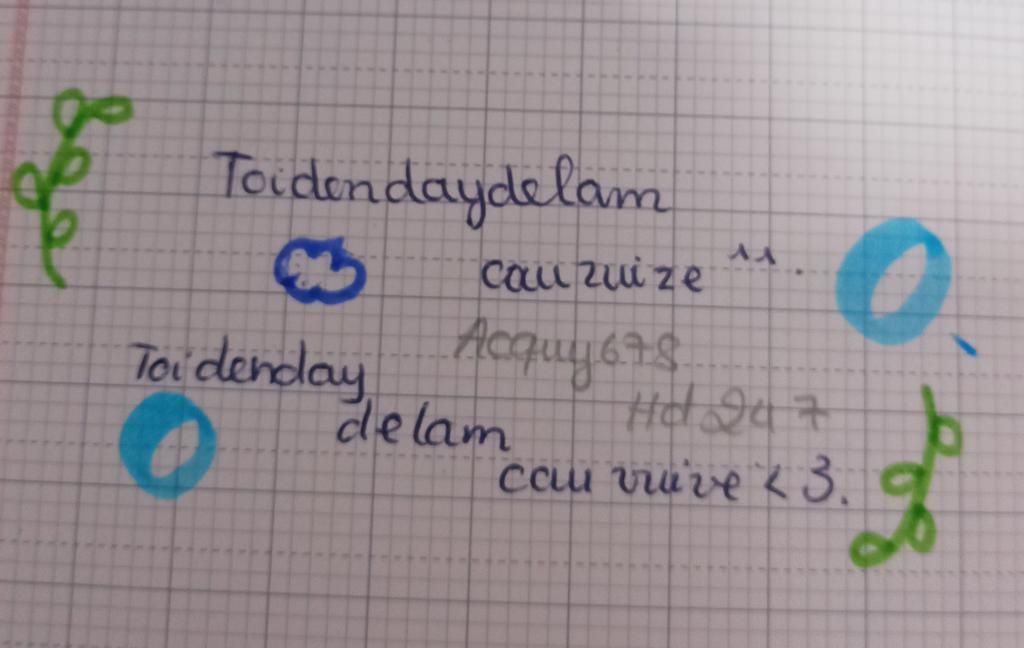 Toidendaydelam
cau zuize ^^.
Acquy678
Toidenday
Hd247
delam
cau vuive <3.